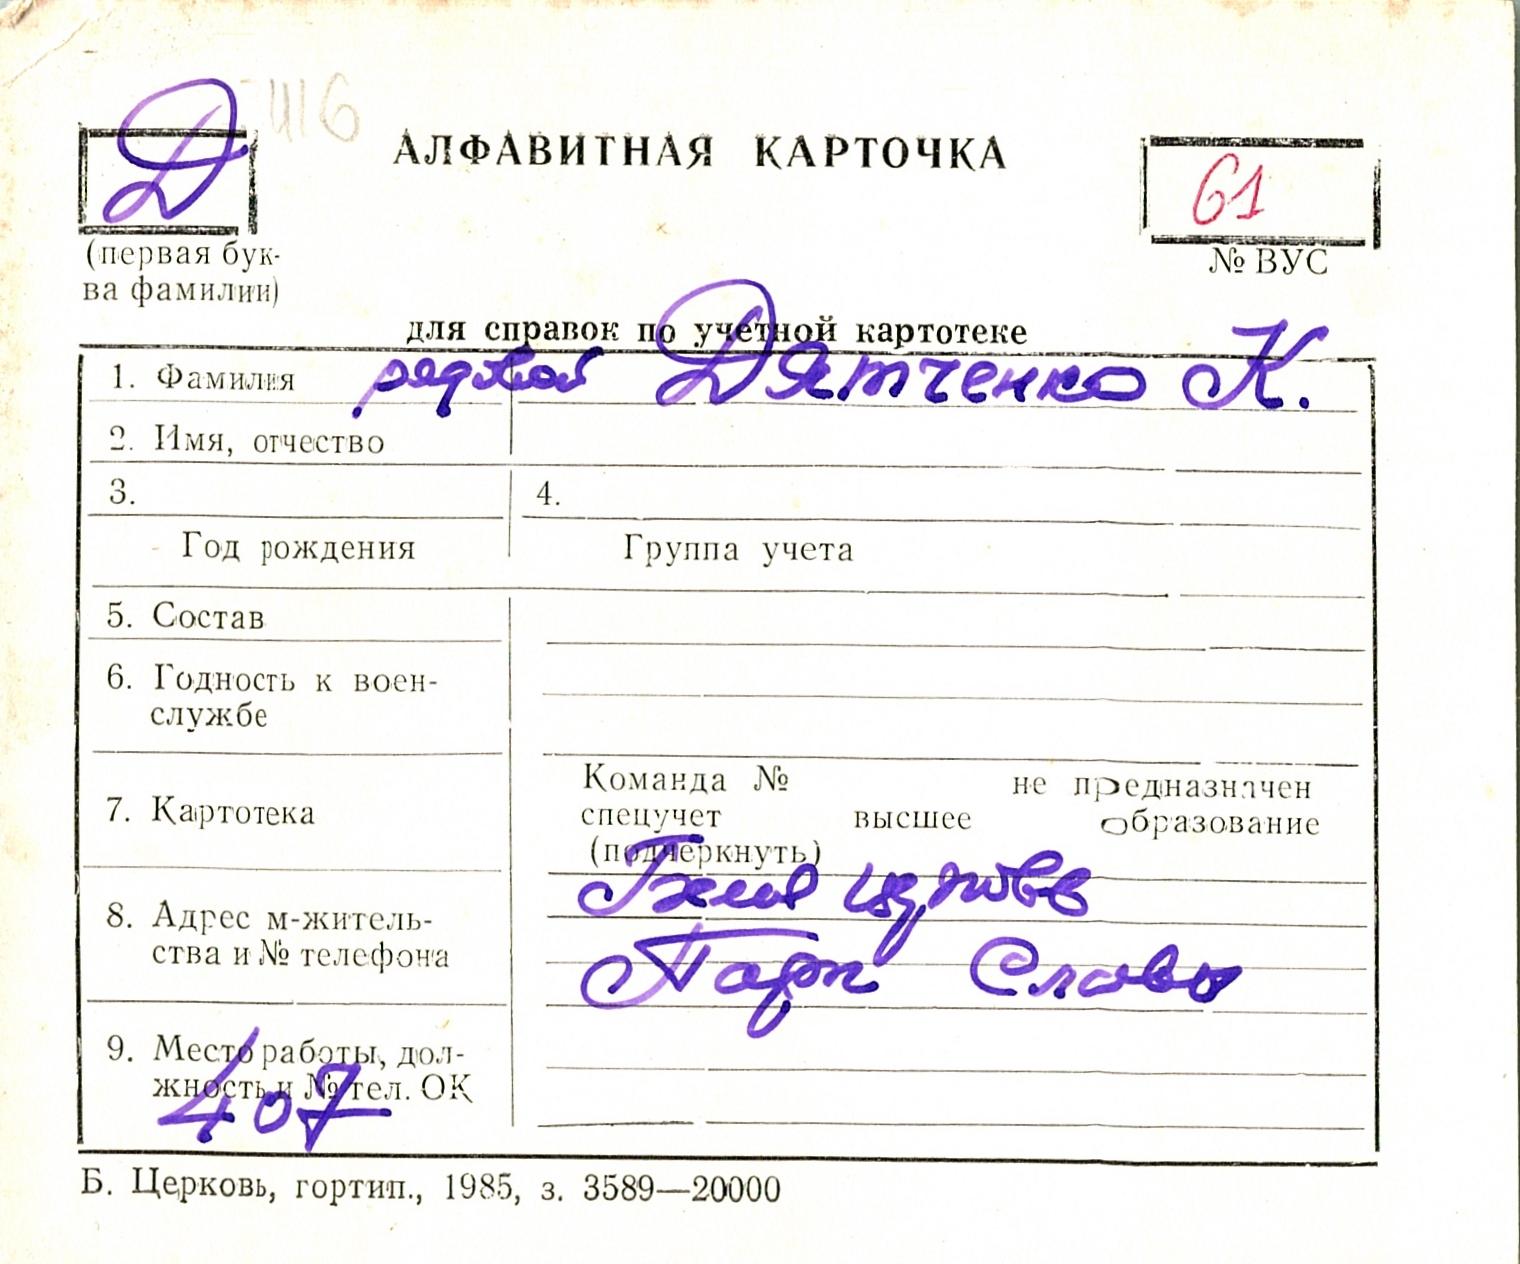 Д 1116
АЛФАВИТНАЯ КАРТОЧКА
61
(первая бук-
ва фамилии)
№ ВУС
для справок по учетной картотеке
1. Фамилия рядовой Дятченко К.
2. Имя, отчество
3. 4.
Год рождения Группа учета
5. Состав
6. Годность к воен-
службе
7. Картотека
Команда № не предназначен
спецучет высшее образование
(подчеркнуть)
8. Адрес м-житель-
ства и № телефона
Парк Славы
9. Место работы, дол-
жность и № тел. ОК
407
Б. Церковь, гортип., 1985, з. 3589—20000